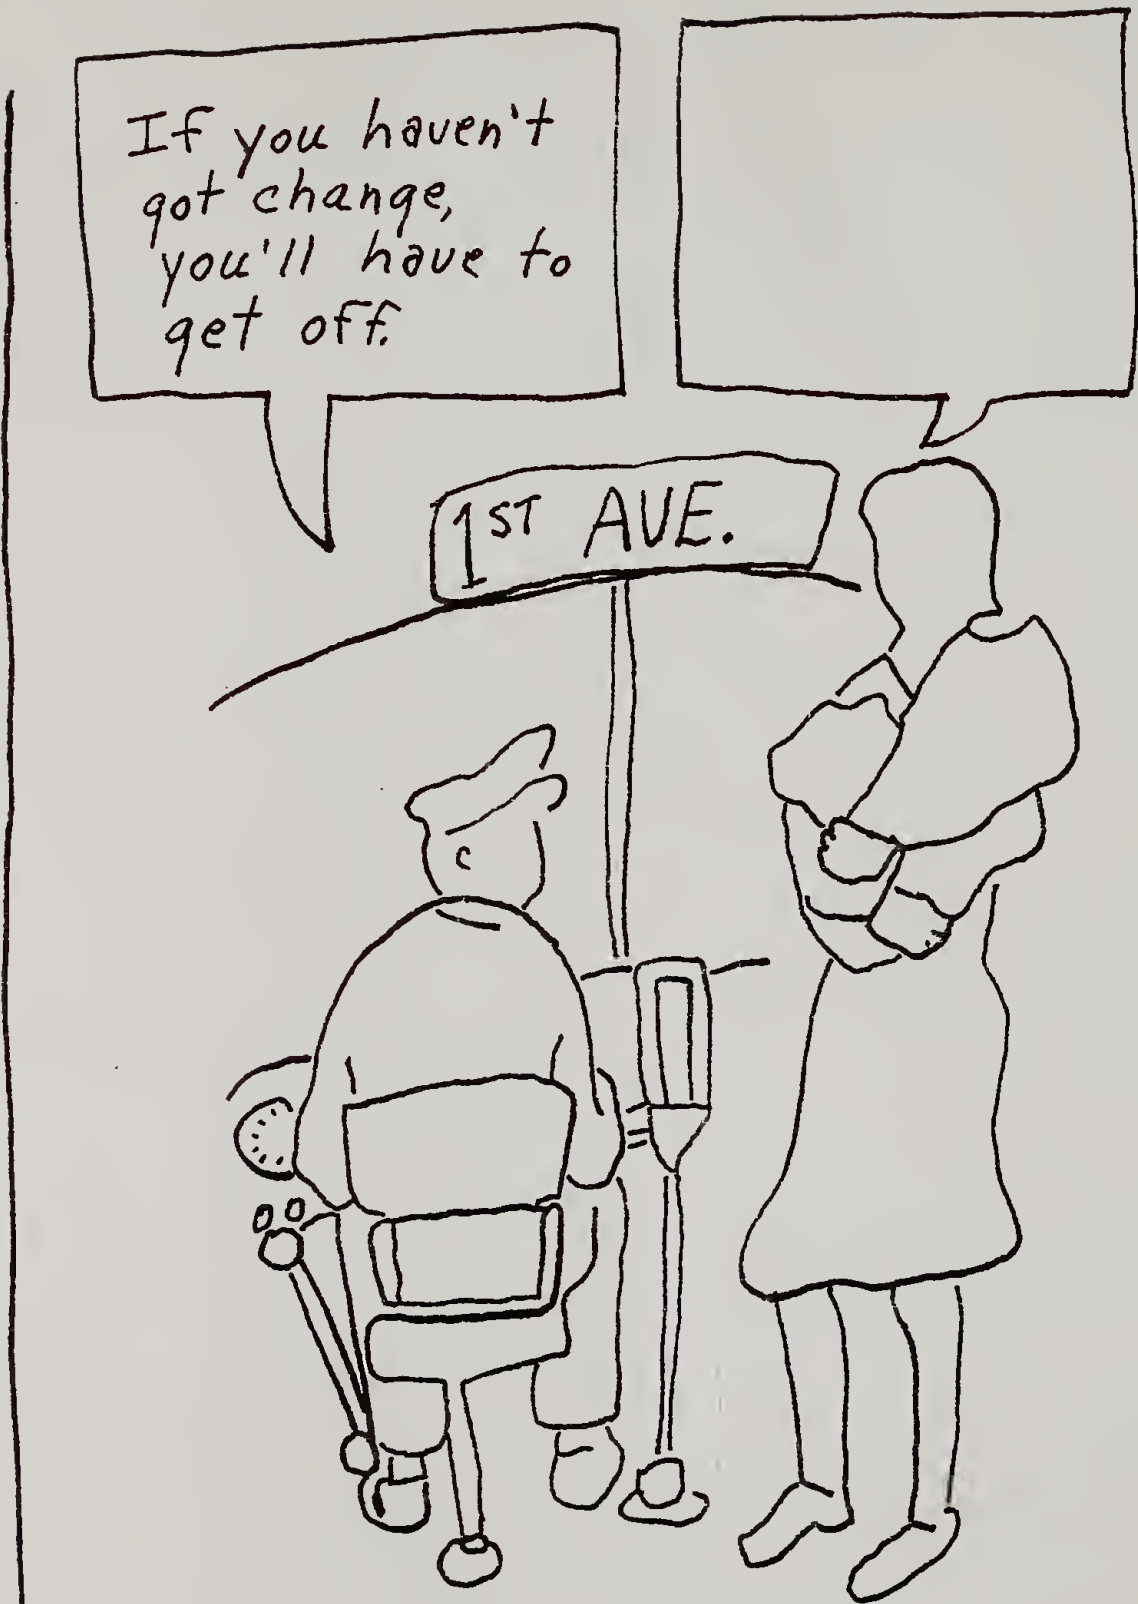 If you haven't
got change,
you'll have to
get off.
1ST AVE.